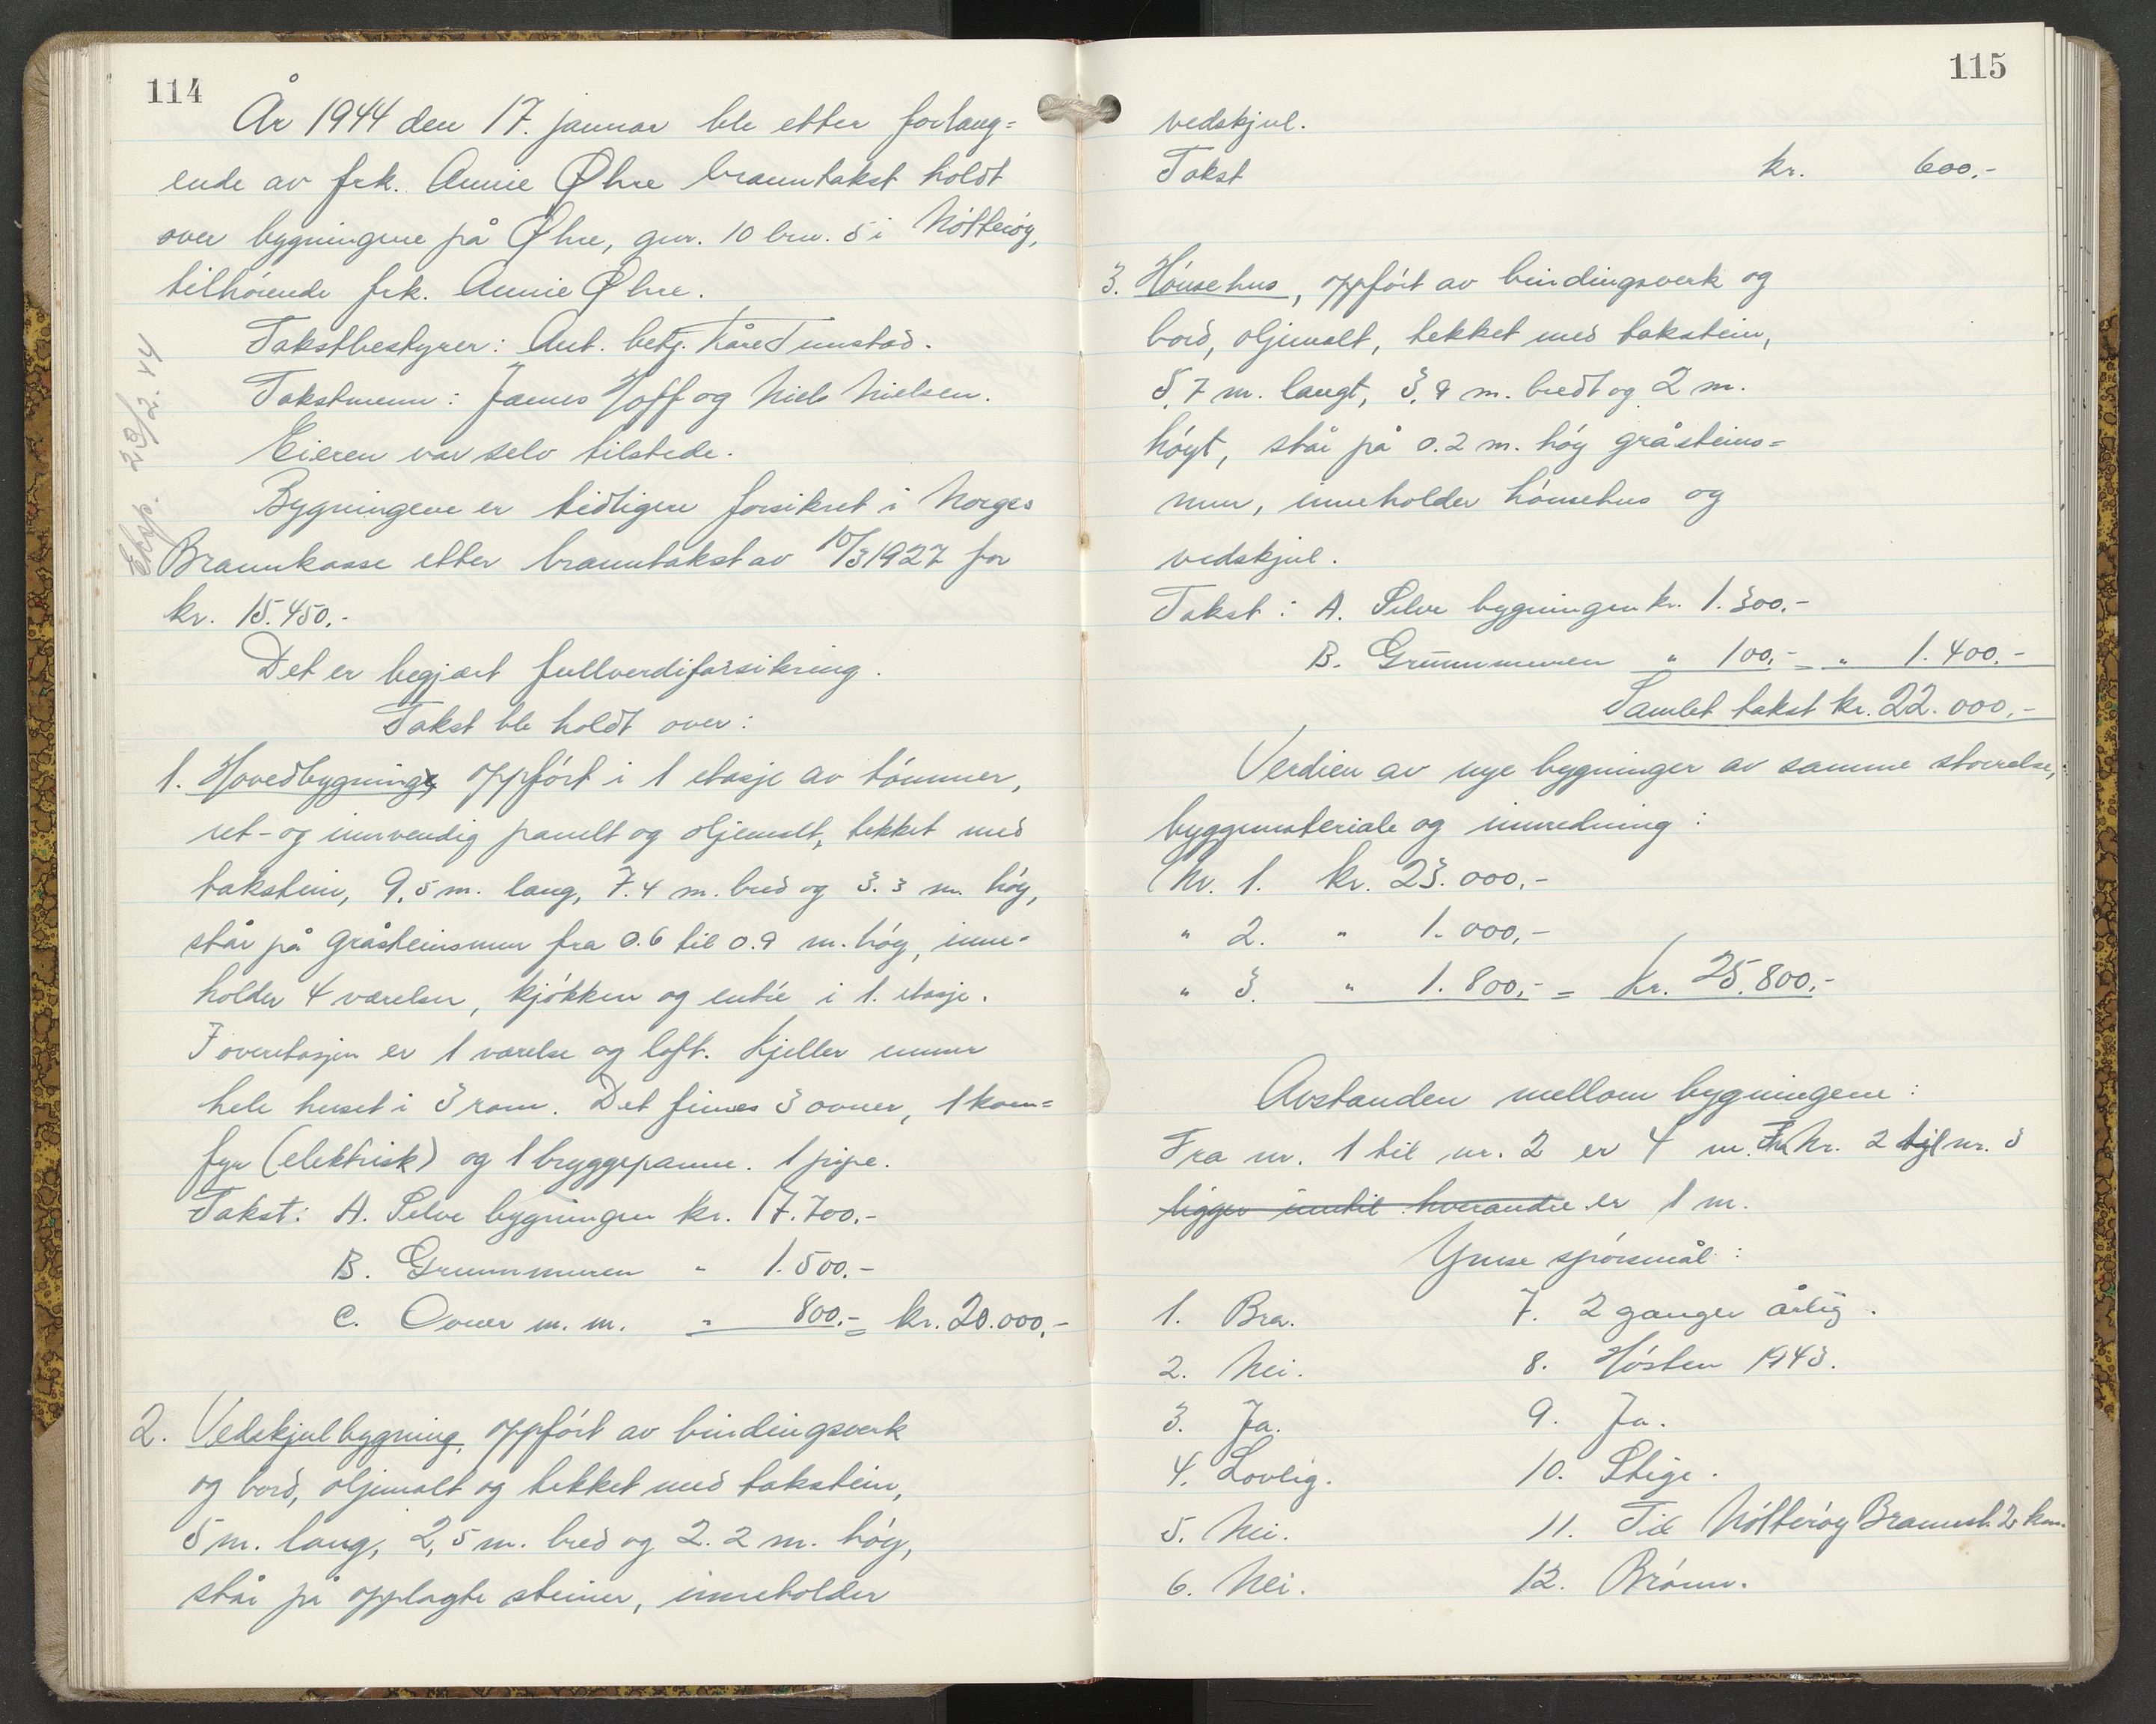 114
År 1944 den 17. januar ble etter forlang=
ende av frk. Annie Øhre branntakst holdt
over bygningene på Øhre, gnr. 10 bnr. 5 i Nótterøy,
tilhórende frk. Annie Øhre.
Takstbestyrer: Ant. betj. Kåre Tunstad.
Takstmenn: James Hoff og Niels Nielsen.
Eieren var selv tilstede.
Bygningene er tidligere forsikret i Norges
Brannkasse etter branntakst av 10/3 1927 for
kr. 15.450.-
Det er begjært fullverdiforsikring.
Takst ble holdt over:
1. Hovedbygning, oppfórt i 1 etasje av tómmer,
ut- og innvendig panelt og oljemalt, tekket med
takstein, 9,5 m. lang, 7.4 m. bred og 3.3 m. hóy,
står på gråsteinsmur fra 0.6 til 0.9 m. hóy, inne-
holder 4 værelser, kjókken og entré i 1. etasje.
I overetasjen er 1 værelse og loft. Kjeller under
hele huset i 3 rom. Det finnes 3 ovner, 1 kom=
fyr (elektrisk) og 1 bryggepanne. 1 pipe.
Takst: A. Selve bygningen kr. 17.700.-
B. Grunnmuren " 1.500.-
C. Ovner m. m. " 800.- = kr. 20.000,-
2. Vedskjulbygning, oppfórt av bindingsverk
og bord, oljemalt og tekket med takstein,
5 m. lang, 2,5 m. bred og 2.2 m. hóy,
står på opplagte steiner, inneholder
Eksp. 23/2. 44
115
vedskjul.
Takst kr. 600.-
3. Hónsehus, oppfórt av bindingsverk og
bord, oljemalt, tekket med takstein,
5,7 m. langt, 3,9 m. bredt og 2 m.
hóyt, står på 0.2 m. hóy gråsteins=
mur, inneholder hónsehus og
vedskjul.
Takst: A. Selve bygningen kr. 1.300.-
B. Grunnmuren " 100,- = " 1.400.-
Samlet takst kr. 22.000,-
Verdien av nye bygninger av samme størrelse,
byggemateriale og innredning:
Nr. 1. kr. 23.000,-
" 2. " 1.000,-
" 3. " 1.800,- = kr. 25.800,-
Avstanden mellom bygningene:
Fra nr. 1 til nr. 2 er 4 m. Fra Nr. 2 til nr. 3
ligger inntil hverandre er 1 m.
Ymse spórsmål:
1. Bra. 7. 2 ganger årlig.
2. Nei. 8. Hósten 1943.
3. Ja. 9. Ja.
4. Lovlig. 10. Stige.
5. Nei. 11. Til Nótteróy Brannst. 2 km.
6. Nei. 12. Brónn.